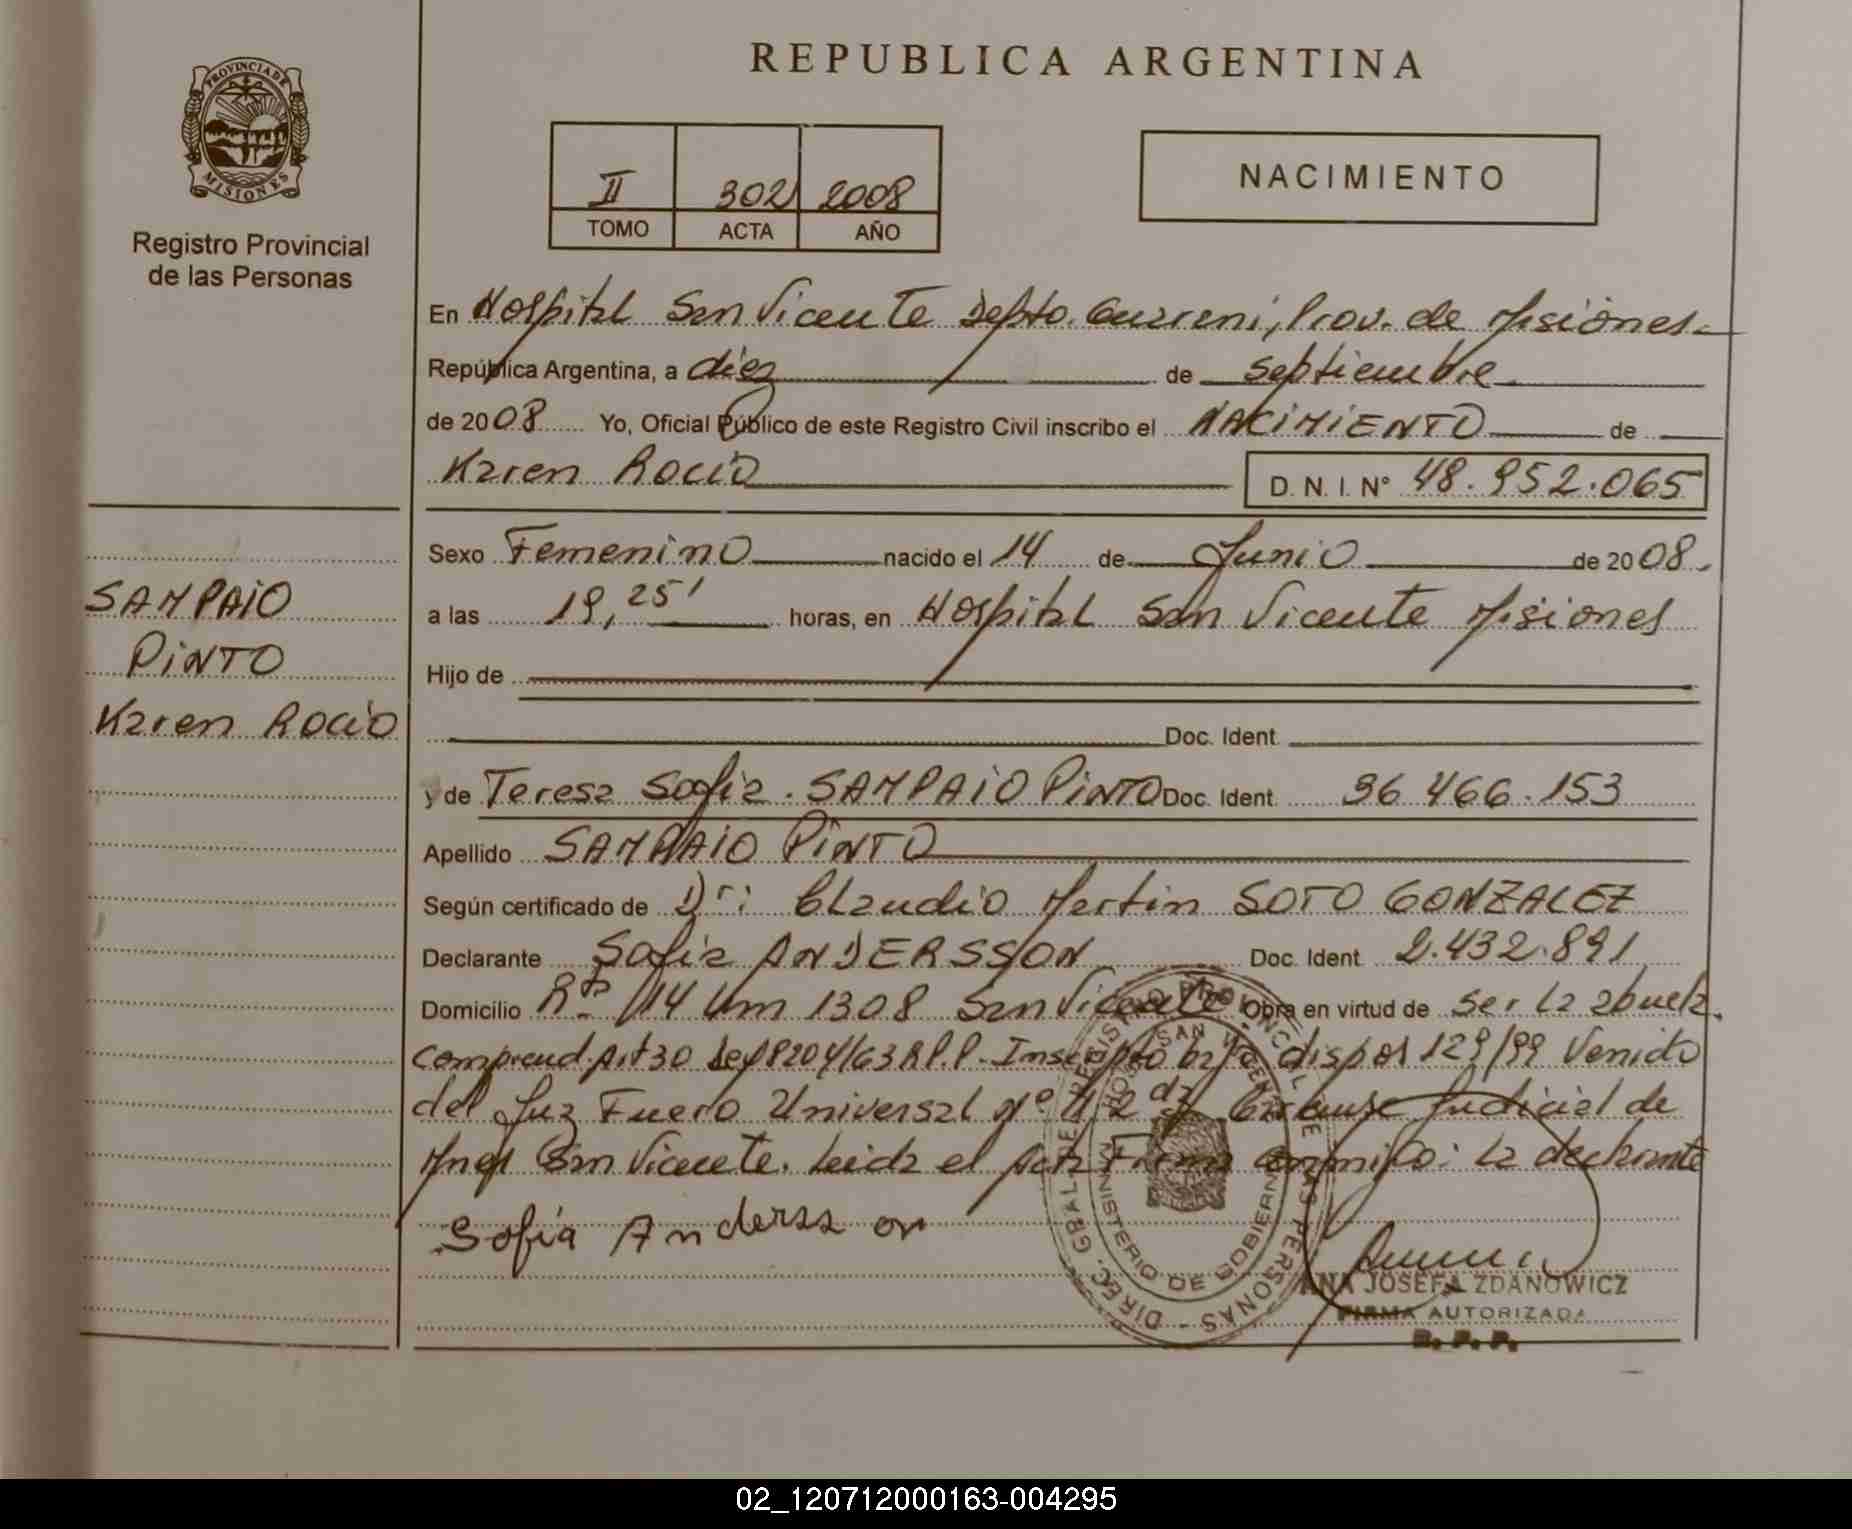 REPUBLICA ARGENTINA
PROVINCIA DE
MISIONES
Registro Provincial
de las Personas
II 302 2008
TOMO ACTA AÑO
NACIMIENTO
En Hospital San Vicente Depto. Guarani, Prov. de Misiones
República Argentina, a diez de septiembre
de 2008 Yo, Oficial Público de este Registro Civil inscribo el NACIMIENTO de
Karen Rocio D. N. I. N° 48.952.065
Sexo Femenino nacido el 14 de Junio de 2008.
SAMPAIO
PINTO
Karen Rocio
a las 19,25' horas, en Hospital San Vicente Misiones
Hijo de
Doc. Ident.
y de Teresa Sofia. SAMPAIO PINTO Doc. Ident. 36 466.153
Apellido SAMPAIO PINTO
Según certificado de Dr: Claudio Martin SOTO GONZALEZ
Declarante Sofia ANDERSSON Doc. Ident. 2.432.891
Domicilio Rta 14 Km 1308 San Vicente Obra en virtud de ser la abuela.
comprend. Art 30 Ley 8204/63 R.P.P. Inscripto bajo dispos 129/99 Venido
del Juz Fuero Universal Nº 2 da Judicial de
Mnes San Vicente. Leida el Acta Firma conmigo: La declarante
Sofia Anderss on
DIREC. GRAL. DEL REGISTRO PROVINCIAL DE LAS PERSONAS
HOSP. SAN VICENTE
MINISTERIO DE GOBIERNO
ANA JOSEFA ZDANOWICZ
FIRMA AUTORIZADA
R.P.P.
02_120712000163-004295